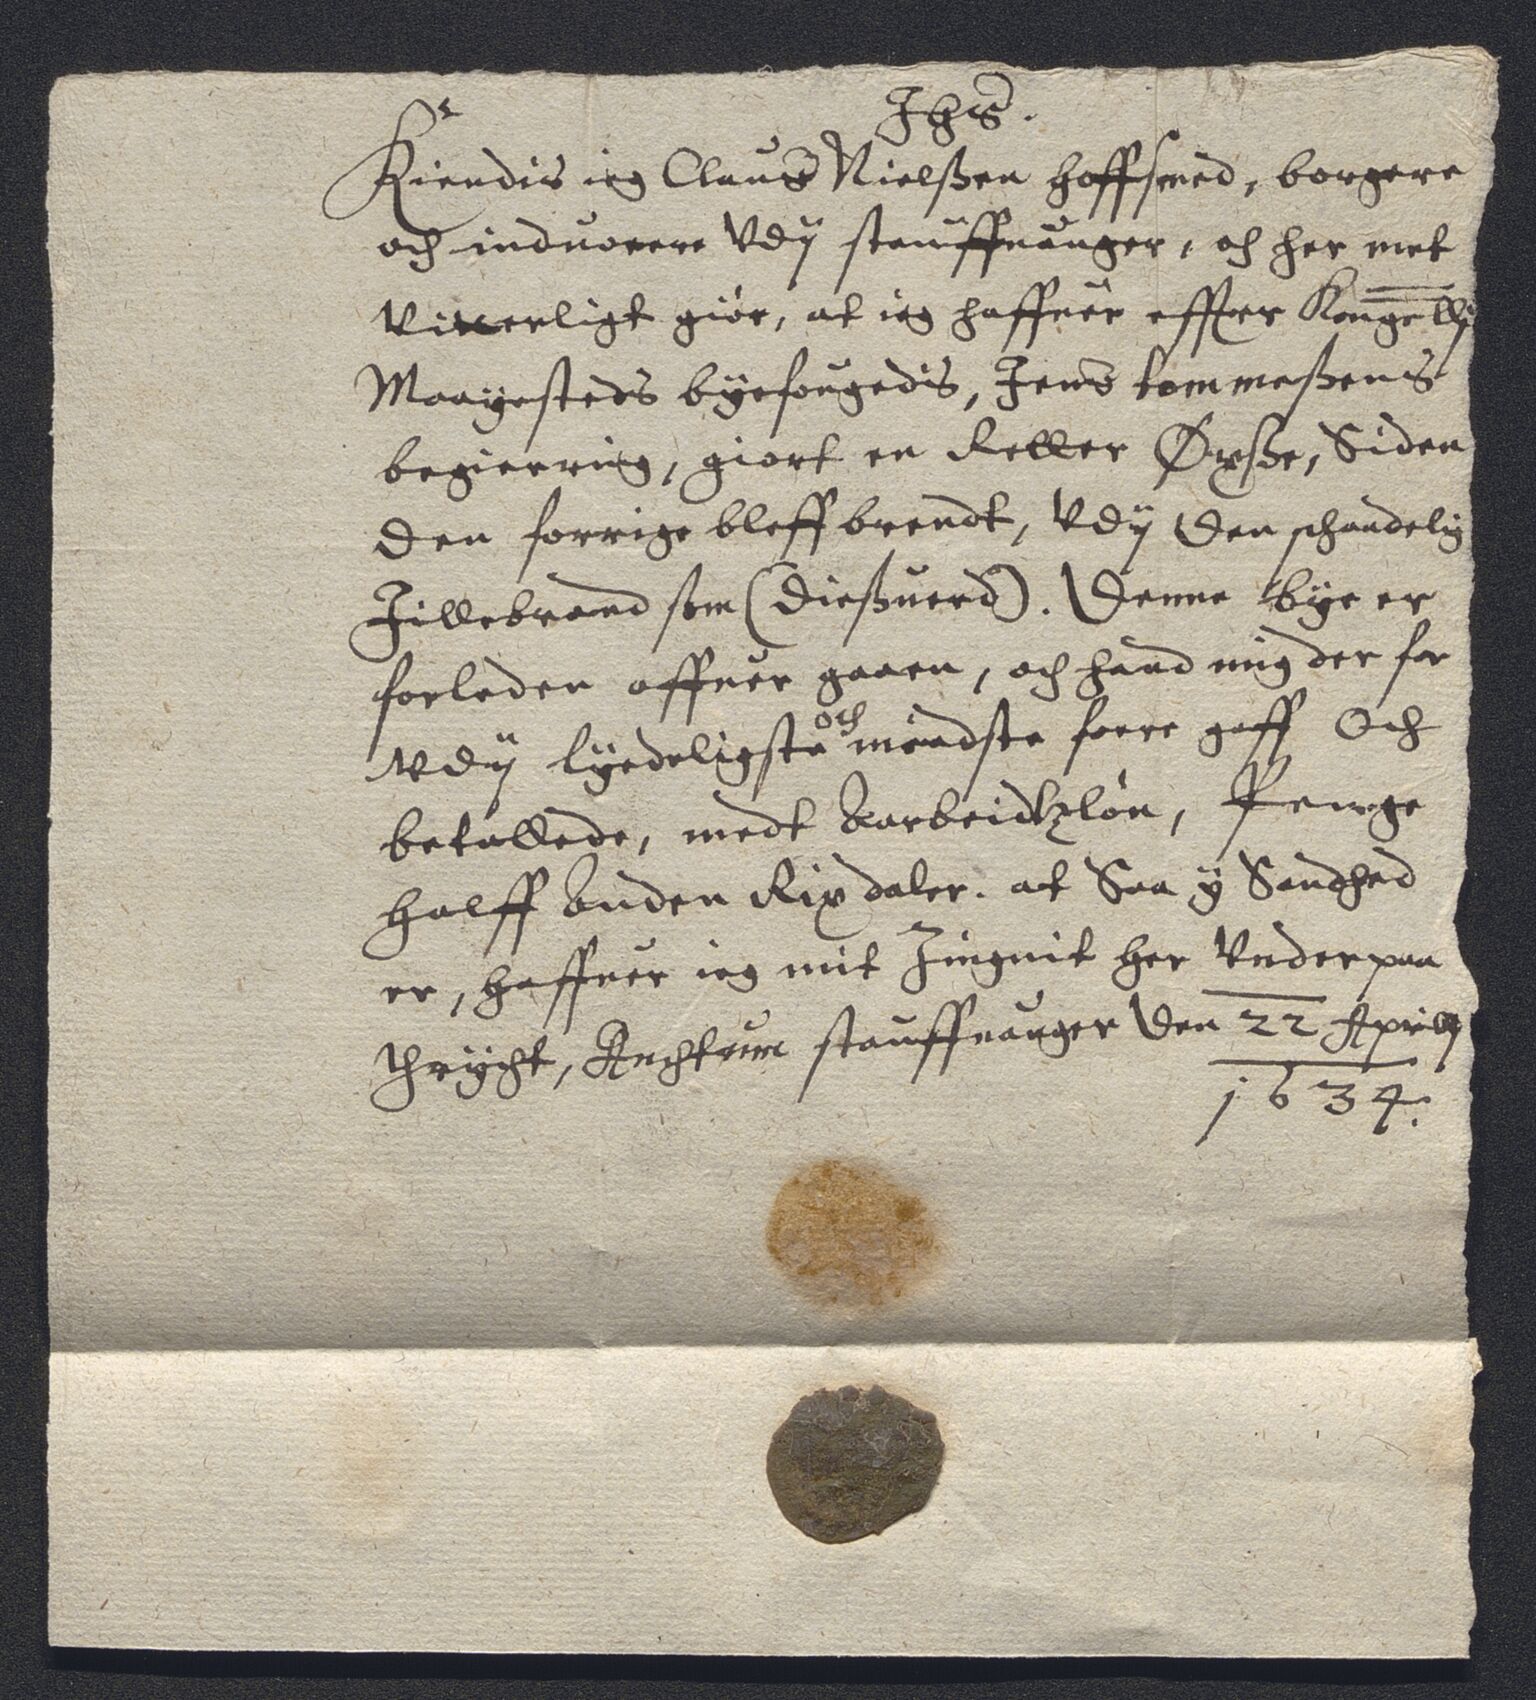 Ihs.
Kiendis ieg Claus Nielßen hoffsmed, borgere
och induonere Vdÿ stauffuanger, och her met
Vitterligt giör, at ieg haffuer effter Kongellig
Maayesteds byefougedis, Jens tommeßens
begierring, giort en Retter Øxße, Siden
den forrige bleff brendt, Vdÿ den schandelig
Jillebrand som (dießuerd). denne bÿe er
forleden offuer gaaen, och hand mig der for
vdÿ lÿedeligste och mindste foere gaff Och
betallede, medt Aarbeidtzlön, Penge
halff Anden Rixdaler. at Saa ÿ Sandhed
er, haffuer ieg mit Zingnit her Vnder paa
thrÿcht, Acchtum stauffuanger den 22 Aprillis
1634.